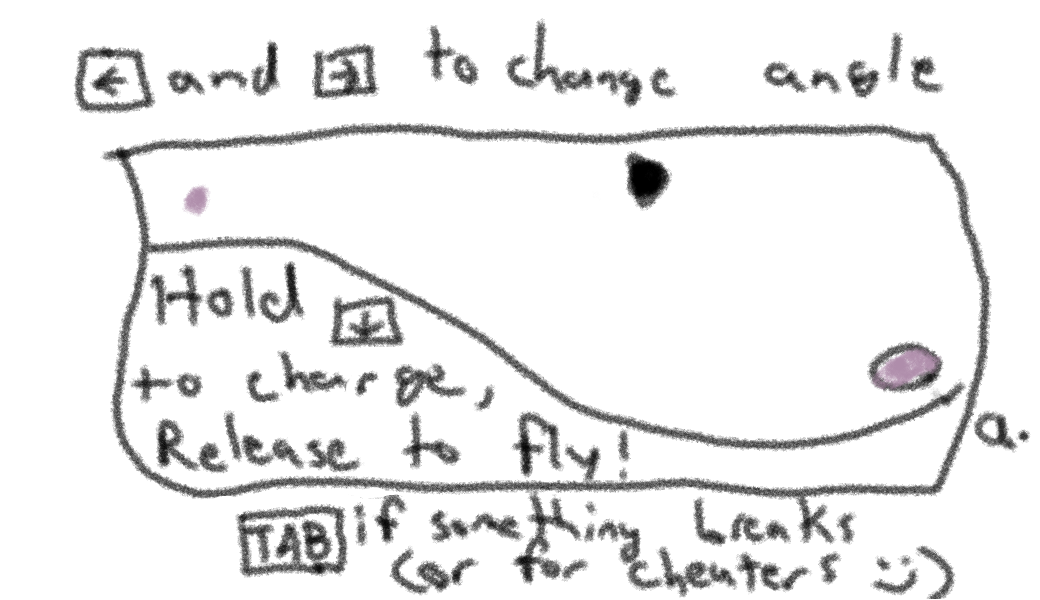 ← and → to change angle
Hold ↓
to charge,
Release to fly!
a.
TAB if something breaks
(or for cheaters :))